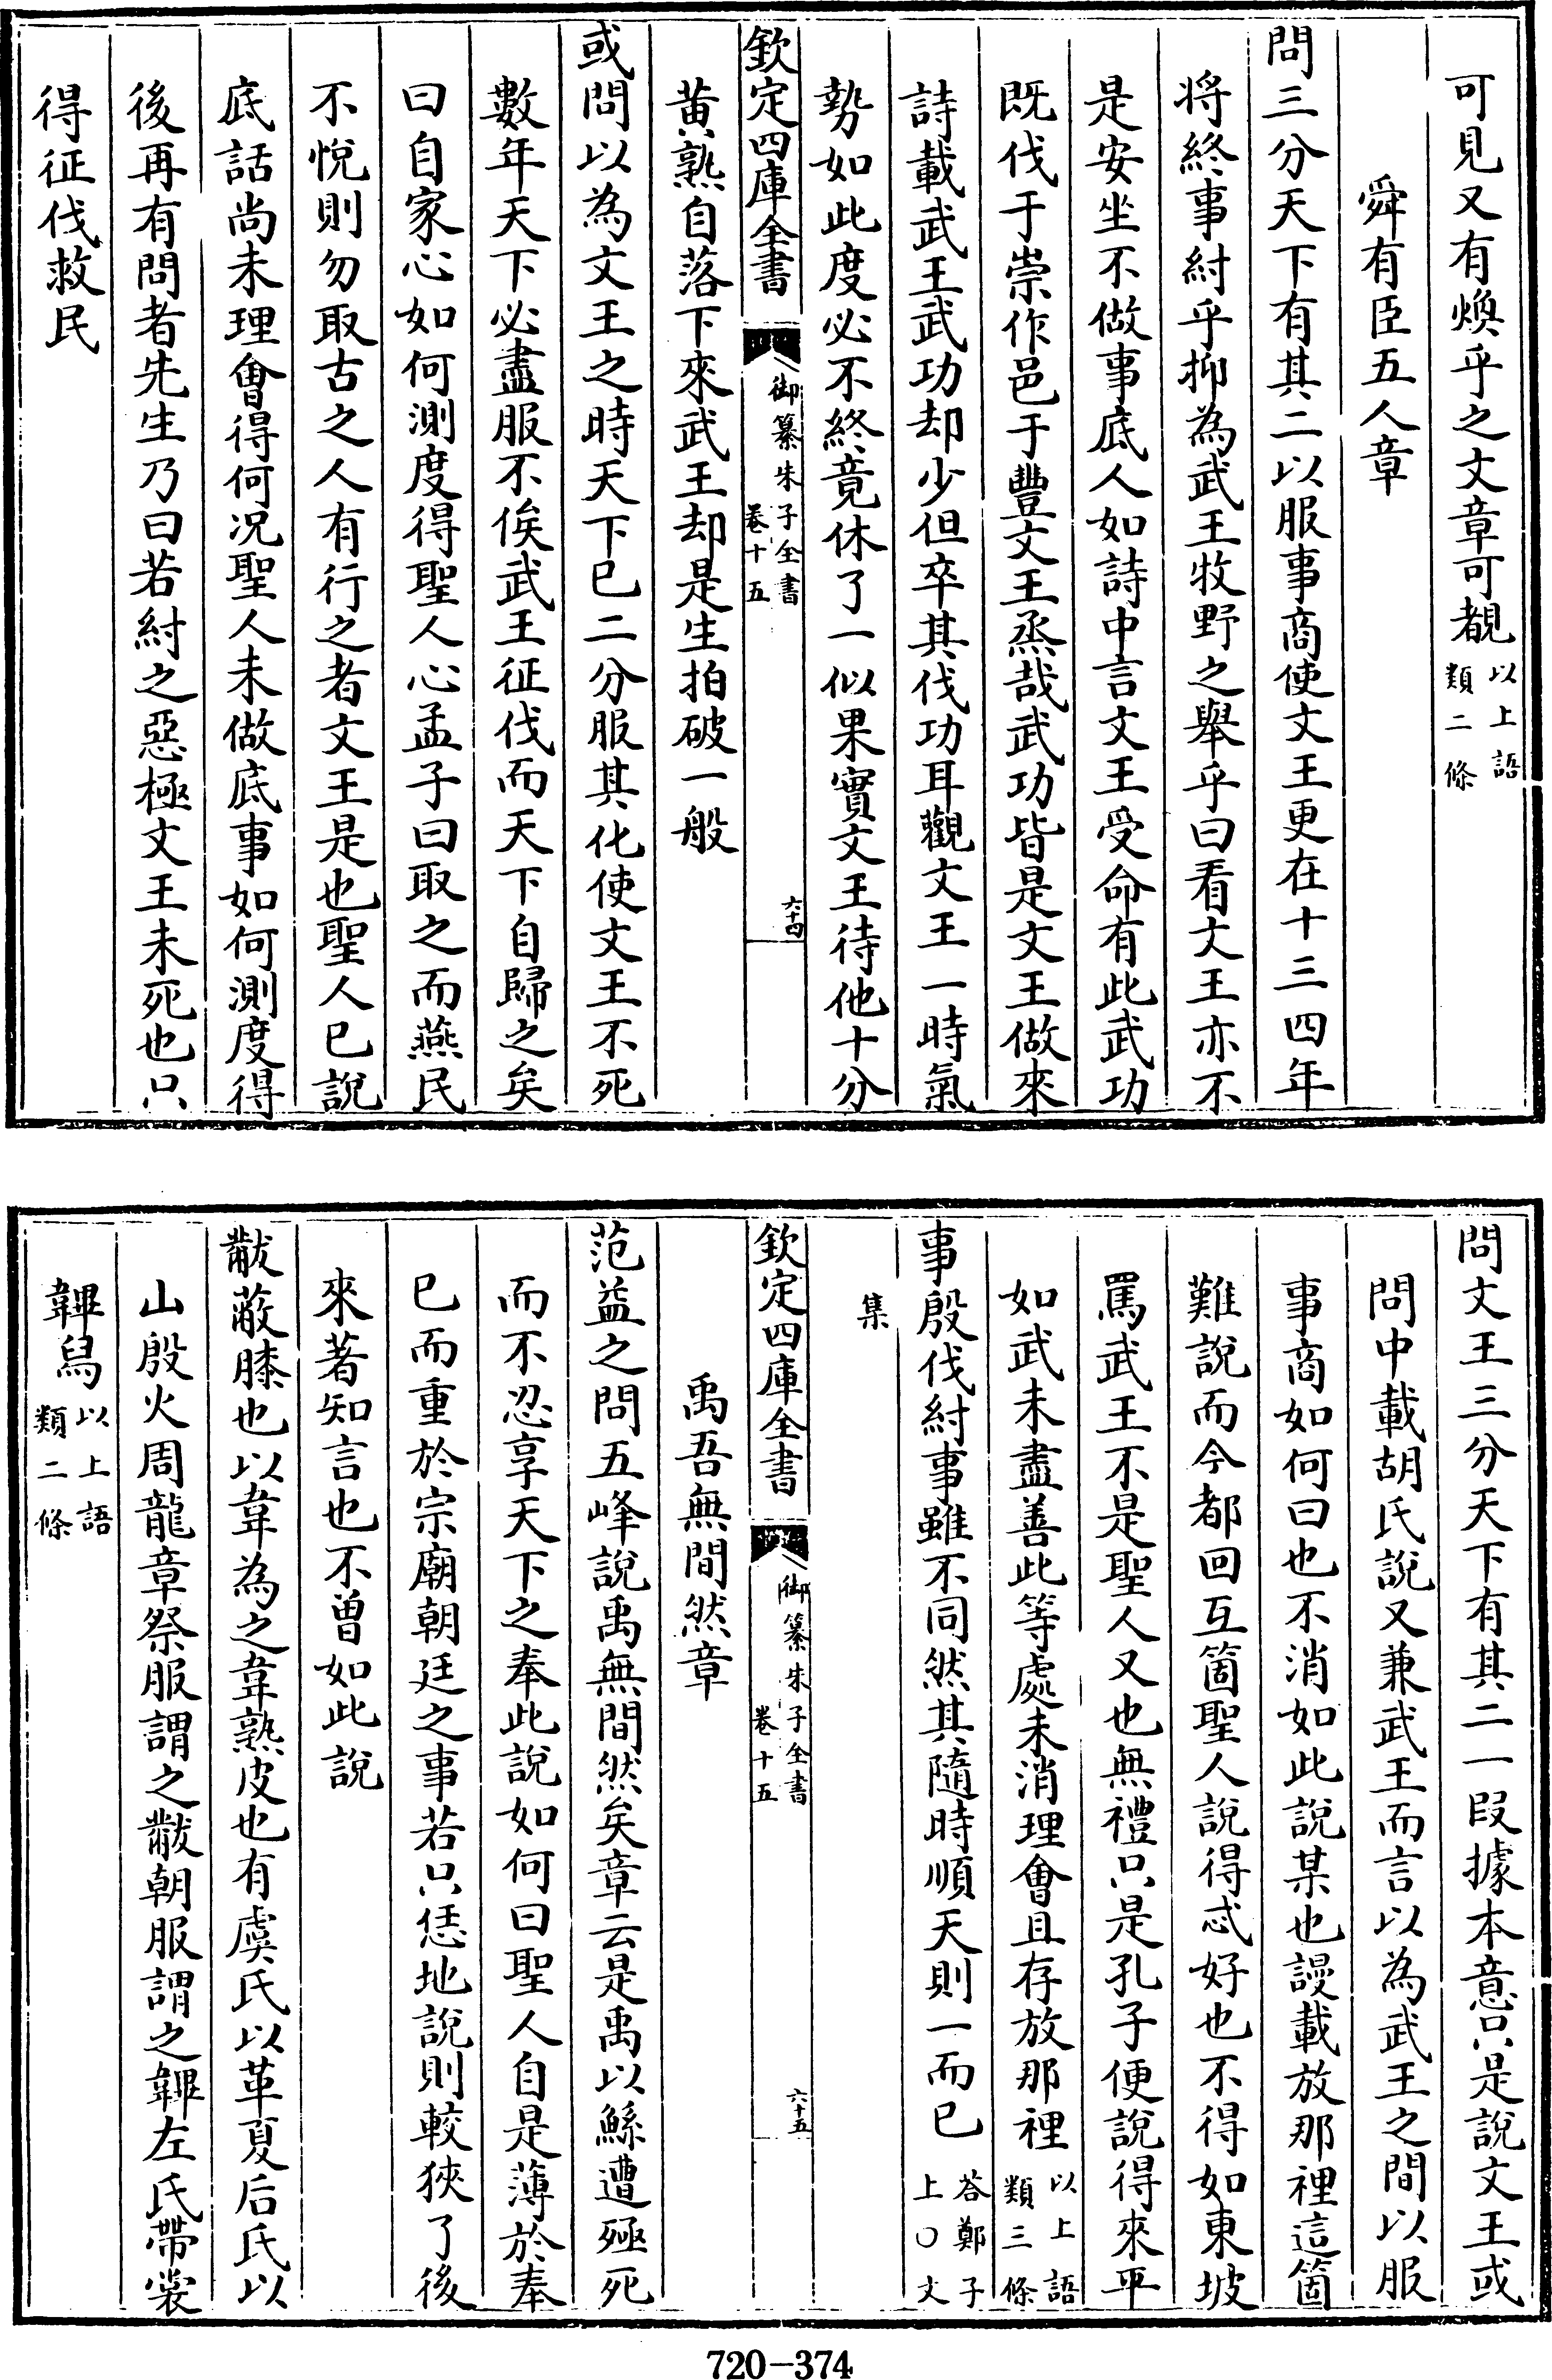 可見又有煥乎之文章可覩以上語類二條
舜有臣五人章
問三分天下有其二以服事商使文王更在十三四年
将終事紂乎抑為武王牧野之舉乎曰看文王亦不
是安坐不做事底人如詩中言文王受命有此武功
既伐于崇作邑于豐文王烝哉武功皆是文王做來
詩載武王武功却少但卒其伐功耳觀文王一時氣
勢如此度必不終竟休了一似果實文王待他十分
欽定四庫全書
御纂朱子全書
卷十五
六十四
黄熟自落下來武王却是生拍破一般
或問以為文王之時天下已二分服其化使文王不死
數年天下必盡服不俟武王征伐而天下自歸之矣
曰自家心如何測度得聖人心孟子曰取之而燕民
不悅則勿取古之人有行之者文王是也聖人已說
底話尚未理會得何况聖人未做底事如何測度得
後再有問者先生乃曰若紂之惡極文王未死也只
得征伐救民
問文王三分天下有其二一段據本意只是說文王或
問中載胡氏說又兼武王而言以為武王之間以服
事商如何曰也不消如此說某也謾載放那裡這箇
難說而今都回互箇聖人說得忒好也不得如東坡
罵武王不是聖人又也無禮只是孔子便說得來平
如武未盡善此等處未消理會且存放那裡以上語類三條
事殷伐紂事雖不同然其隨時順天則一而已答鄭子上〇文
集
欽定四庫全書
御纂朱子全書
卷十五
六十五
禹吾無間然章
范益之問五峰說禹無間然矣章云是禹以鯀遭殛死
而不忍享天下之奉此說如何曰聖人自是薄於奉
已而重於宗廟朝廷之事若只恁地說則較狹了後
來著知言也不曾如此說
黻蔽膝也以韋為之韋熟皮也有虞氏以革夏后氏以
山殷火周龍章祭服謂之黻朝服謂之韠左氏帶裳
韠舄以上語類二條
720-374